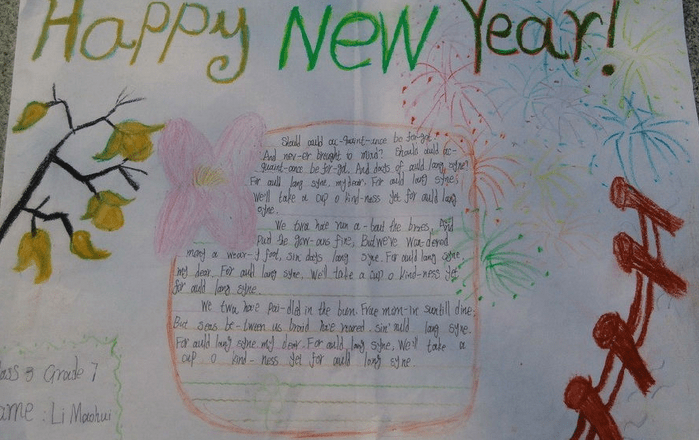 Happy New Year!
Should auld ac-quaint-ance be for-got
And nev-er brought to mind? Should auld ac-
quaint-ance be for-got, And days of auld lang syne?
For auld lang syne, my dear. For auld lang syne,
We'll take a cup o kind-ness yet for auld lang
syne.
We twa have run a-bout the braes, And
pu'd the gow-ans fine, But we've wan-dered
many a wear-y foot, sin days lang syne. For auld lang syne,
my dear. For auld lang syne. We'll take a cup o kind-ness yet
for auld lang syne.
We twa have pai-dled in the burn. Frae morn-in sun till dine.
But seas be-tween us braid have roared sin' auld lang syne.
For auld lang syne my dear. For auld lang syne, We'll take a
cup o kind-ness yet for auld lang syne
ass 3 Grade 7
ame: Li Maohui